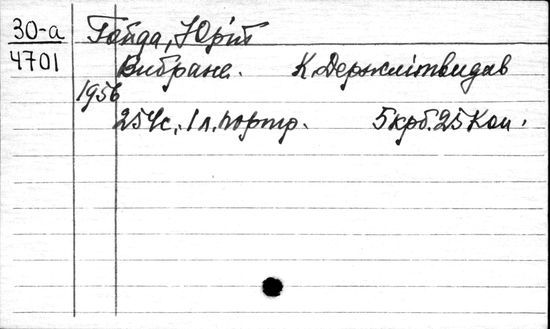 30-а
4701
Гойда, Юрій
Вибране. К. Держлітвидав
1956
254с., 1 л. портр. 5крб. 25 коп.